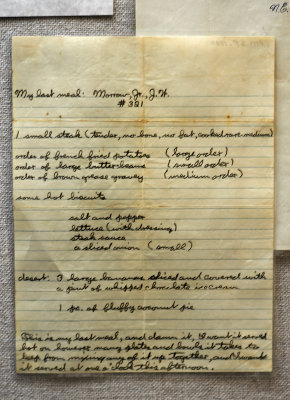 N.E.
My last meal: Morrow, Jr., J. W.
# 321
1 small steak (tender, no bone, no fat, cooked rare-medium)
order of french fried potatoes (large order)
order of large butter beans (small order)
order of brown grease gravey (medium order)
some hot biscuits
salt and pepper
lettuce (with dressing)
steak sauce
a sliced onion (small)
desert: 3 large bananas sliced and covered with
a pint of whipped chocolate icecream
1 pc. of fluffy coconut pie
This is my last meal, and damn it, I want it served
hot on however many plates and bowls it takes to
keep from mixing any of it up together, and I want
it served at one o'clock this afternoon.